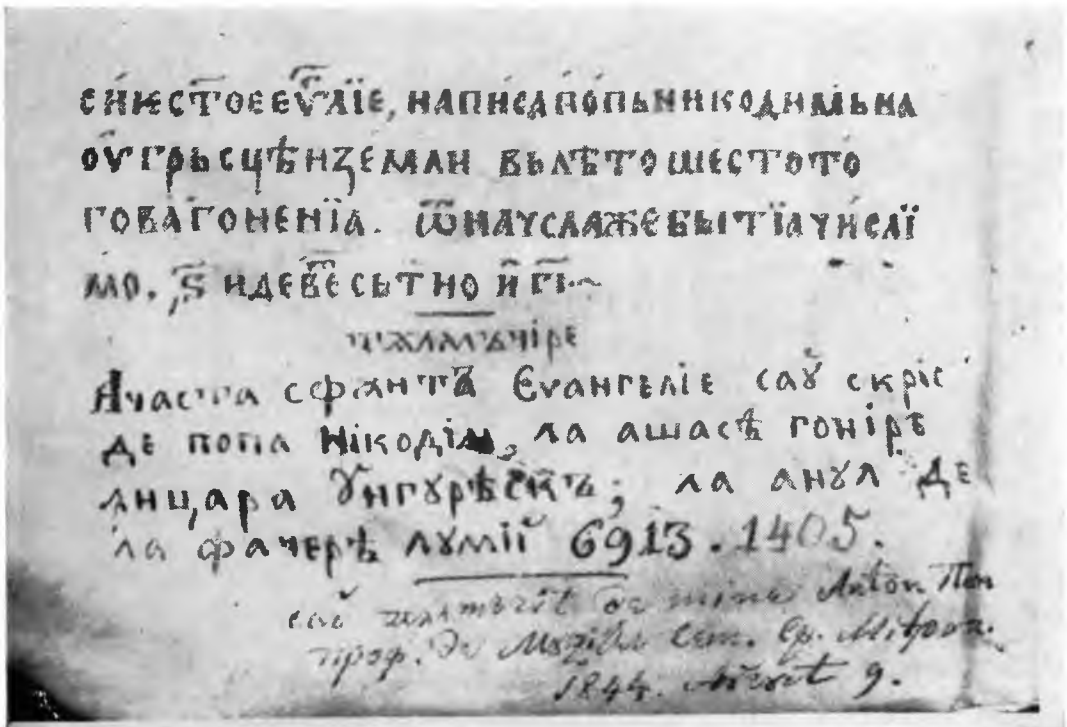 сн҃ѥ ст҃ое еѵ҃лїе, написа попь никодимь на
оугрьсцѣи ꙁемли вь лѣто шестото
го ва гоненїа. ѿ начѧла же бытїа числї
мо. ҂ѕ҃ и деве сьт но и гі҃~
тѫлмъчіре
Ачаста сфѫнтъ Еѵангеліе саȣ̆ скріс
де попа Нікодім, ла ашасѣ гонірѣ
ꙟ цара Ȣнгȣрѣскъ; ла анȣл де
ла фачерѣ лȣмїй 6913. 1405.
саȣ̆ de mine Anton Пан
проф. де Мȣзікъ Сем. Еp. Mitpoп.
1844. 9.